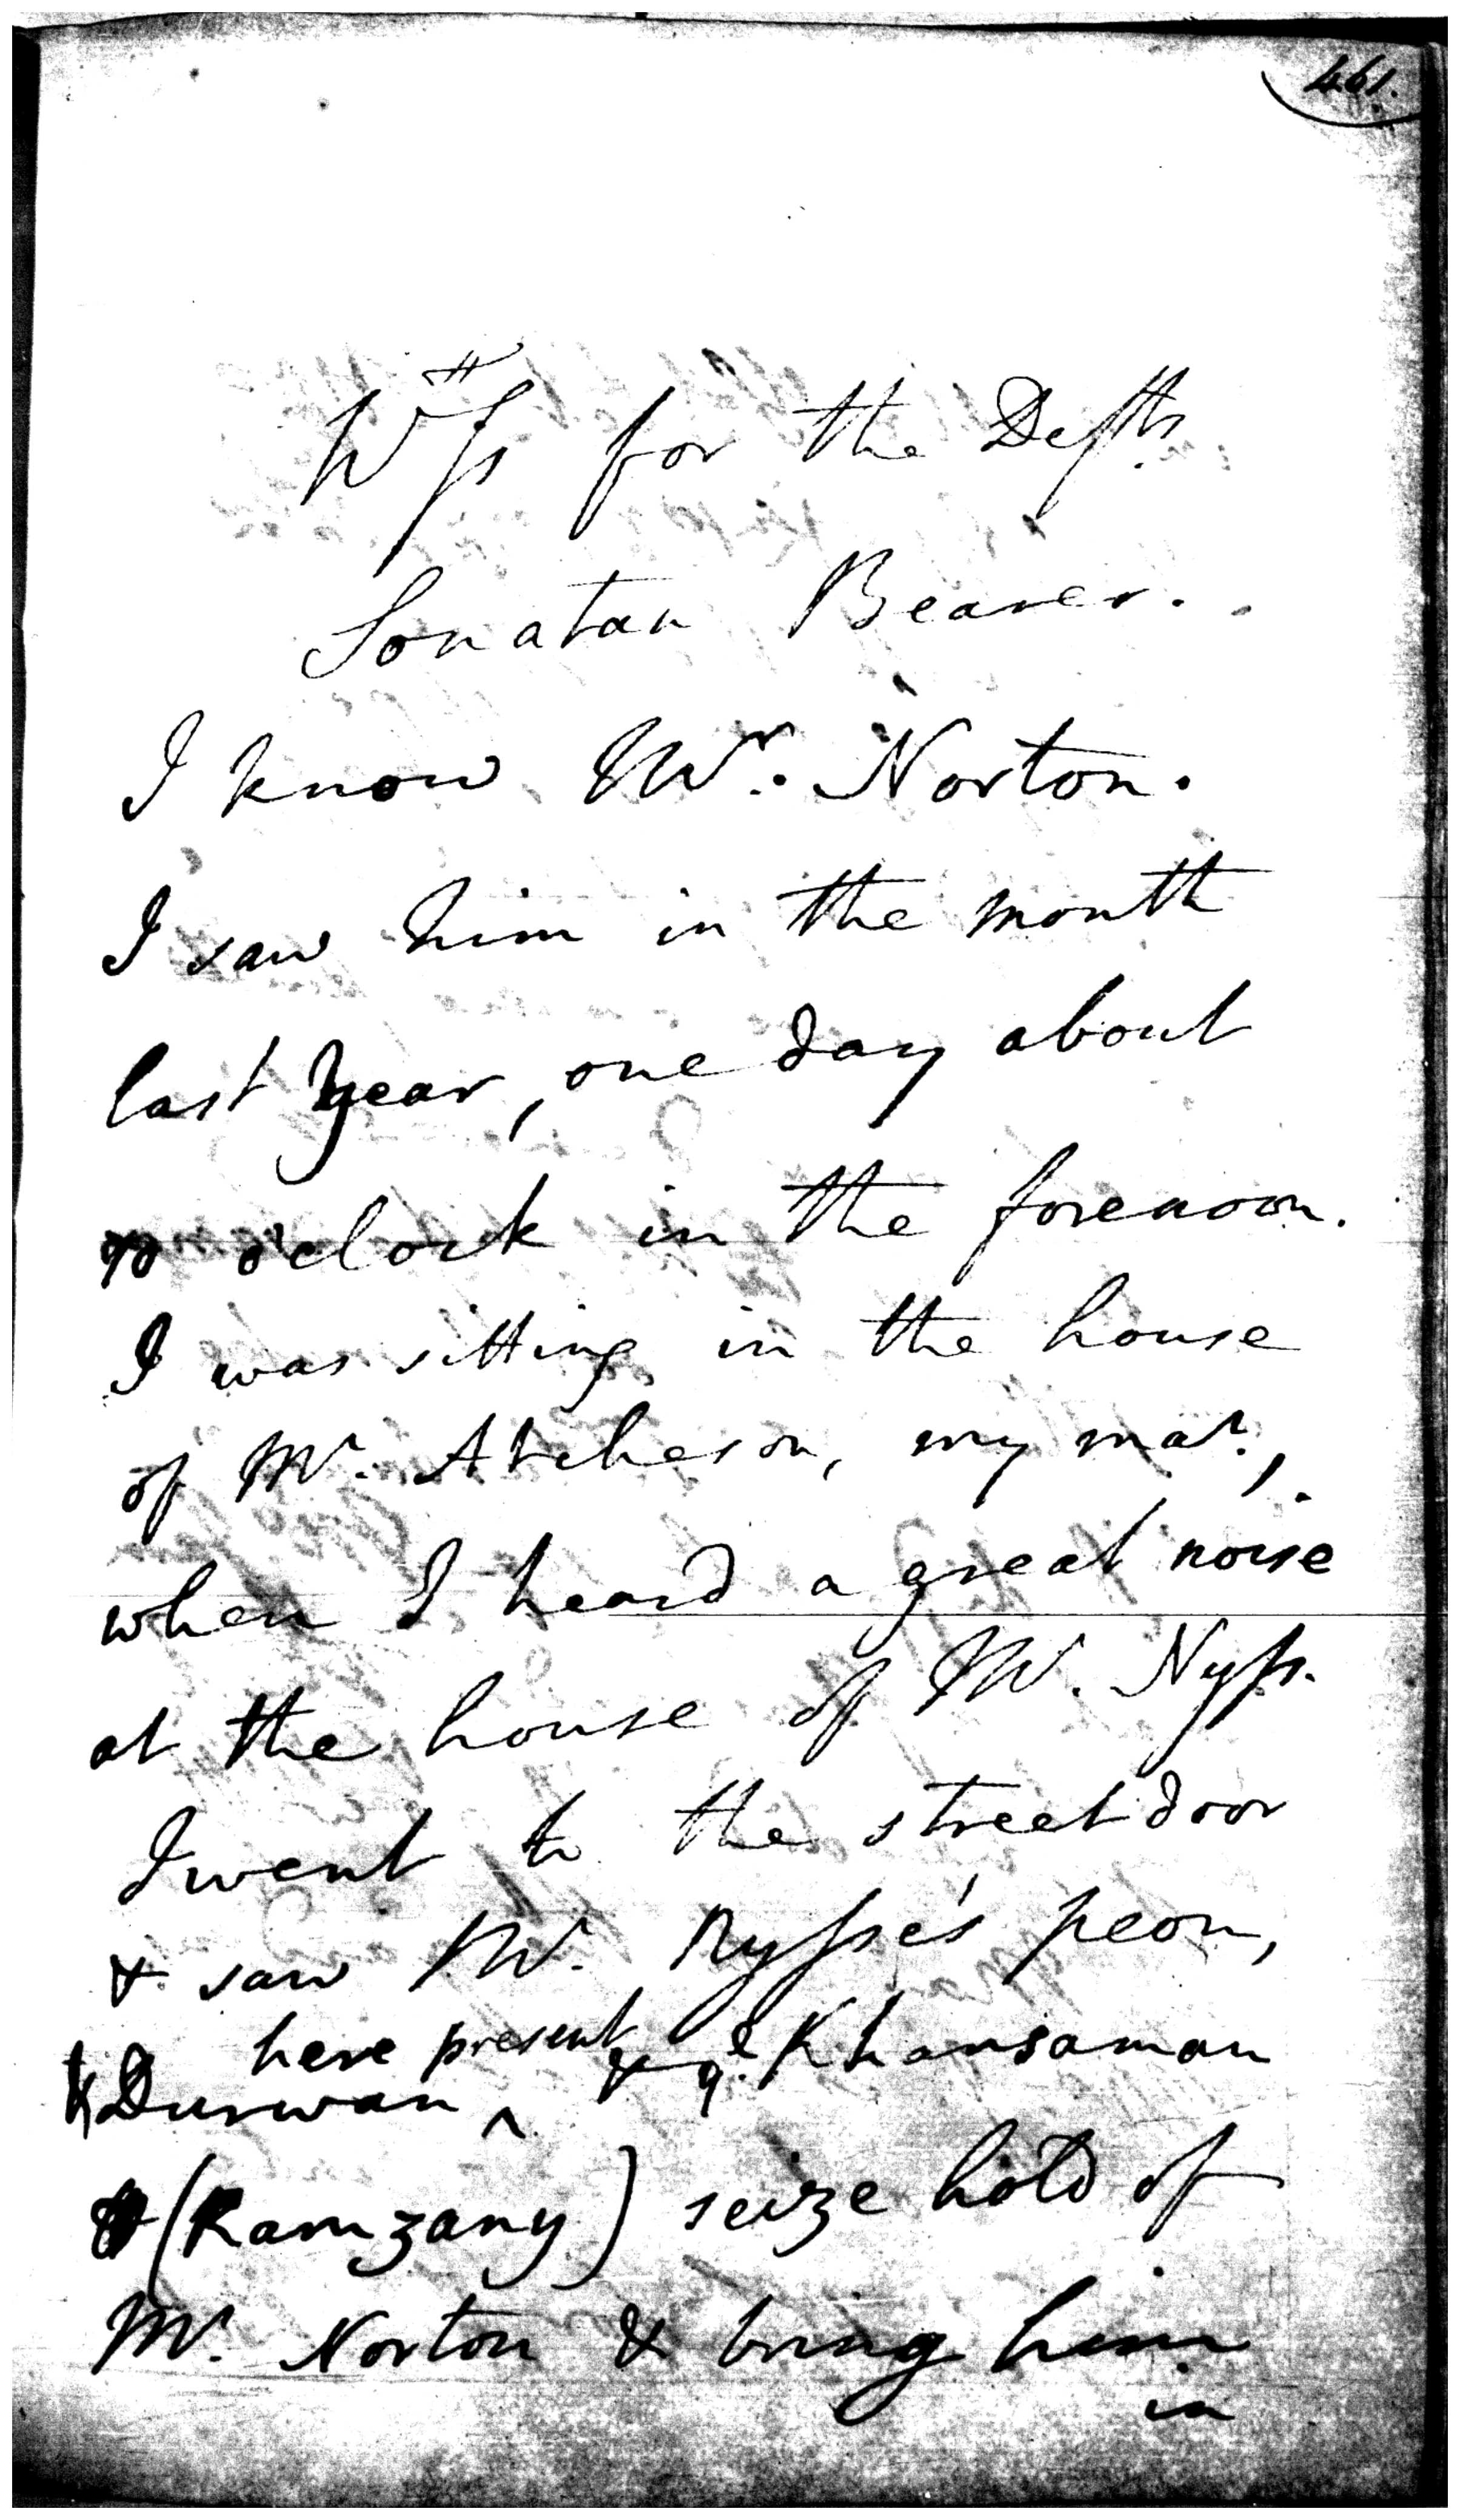 461.
Wtſs for the Defts.
Sonatan Bearer.
I know Mr. Norton.
I saw him in the month
last year, one day about
10 oclock in the forenoon.
I was sitting in the house
of Mr. Atcheson, my mar.,
when I heard a great noise
at the house of Mr. Nyſs.
I went to the street door
& saw Mr. Nyſse's peon,
here present & ye Khansaman
& Durwan ^
(Ramzany) seize hold of
Mr. Norton & bring him
in